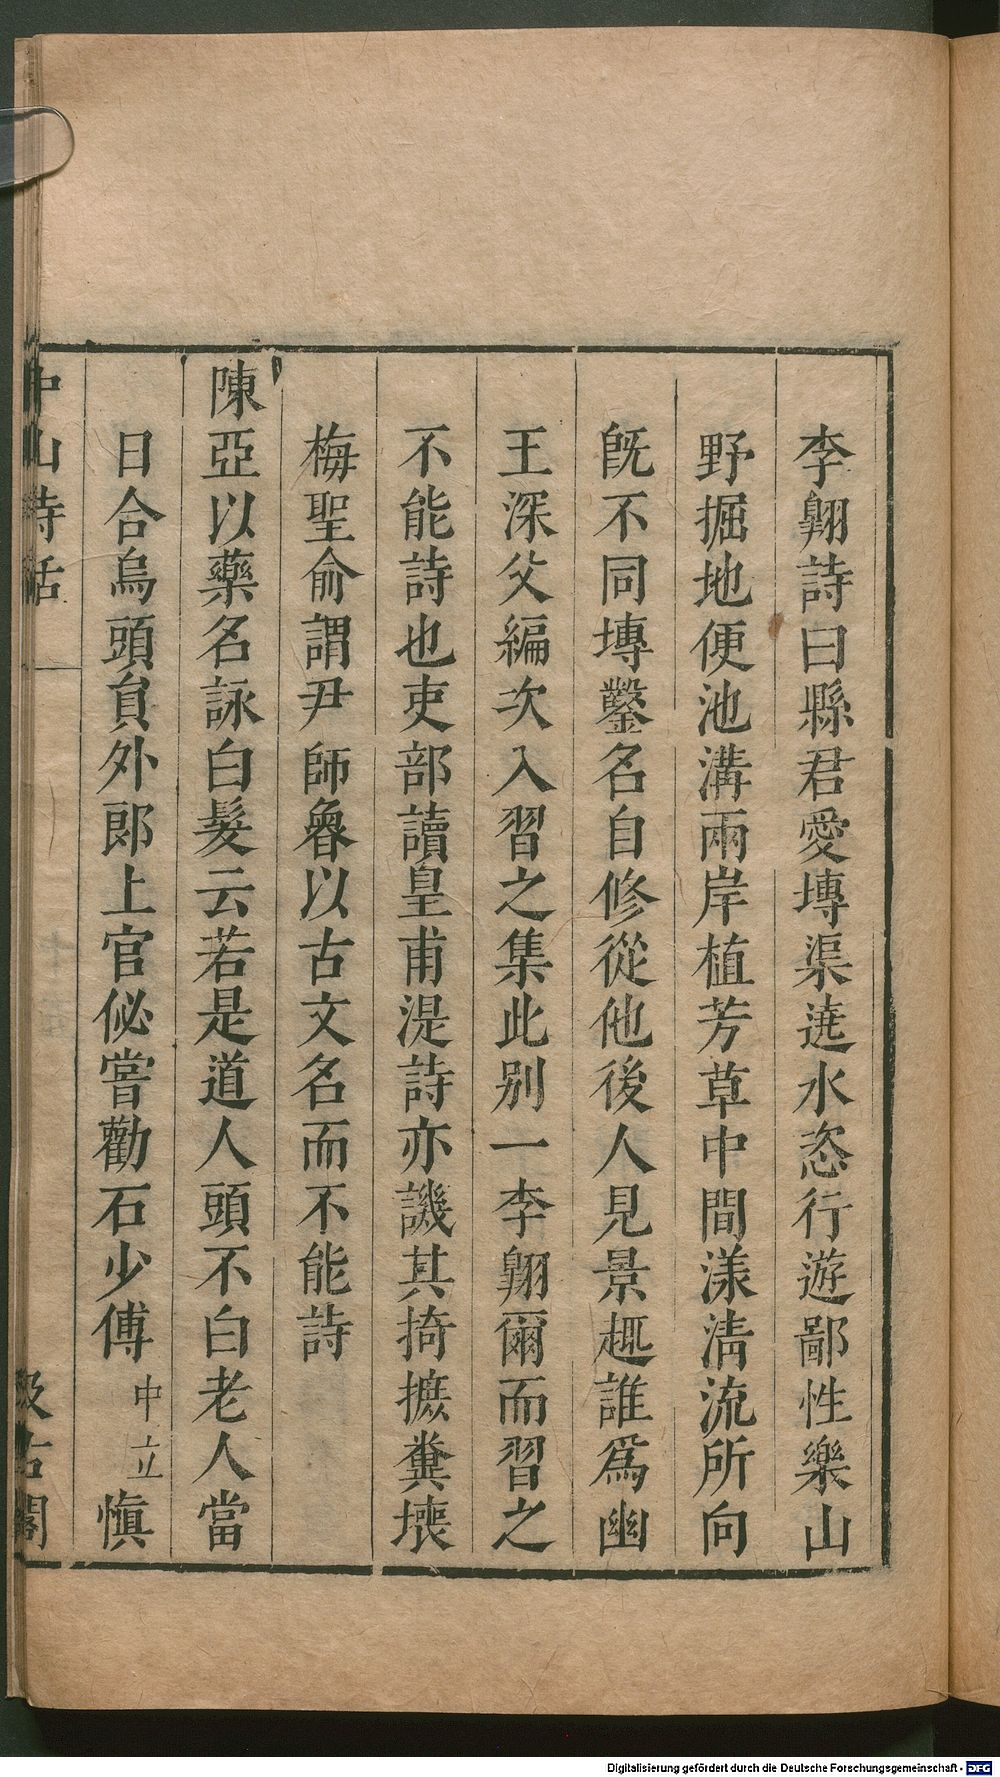 李翺詩曰縣君愛塼渠遶水恣行遊鄙性樂山
野掘地便池溝兩岸植芳草中間漾淸流所向
旣不同塼鑿名自修從他後人見景趣誰爲幽
王深父編次入習之集此别一李翺爾而習之
不能詩也吏部讀皇甫湜詩亦譏其掎摭糞壤
梅聖俞謂尹師魯以古文名而不能詩
陳亞以藥名詠白髮云若是道人頭不白老人當
日合烏頭貟外郎上官佖嘗勸石少傅中立愼
中山詩話
汲古閣
Digitalisierung gefördert durch die Deutsche Forschungsgemeinschaft - DFG